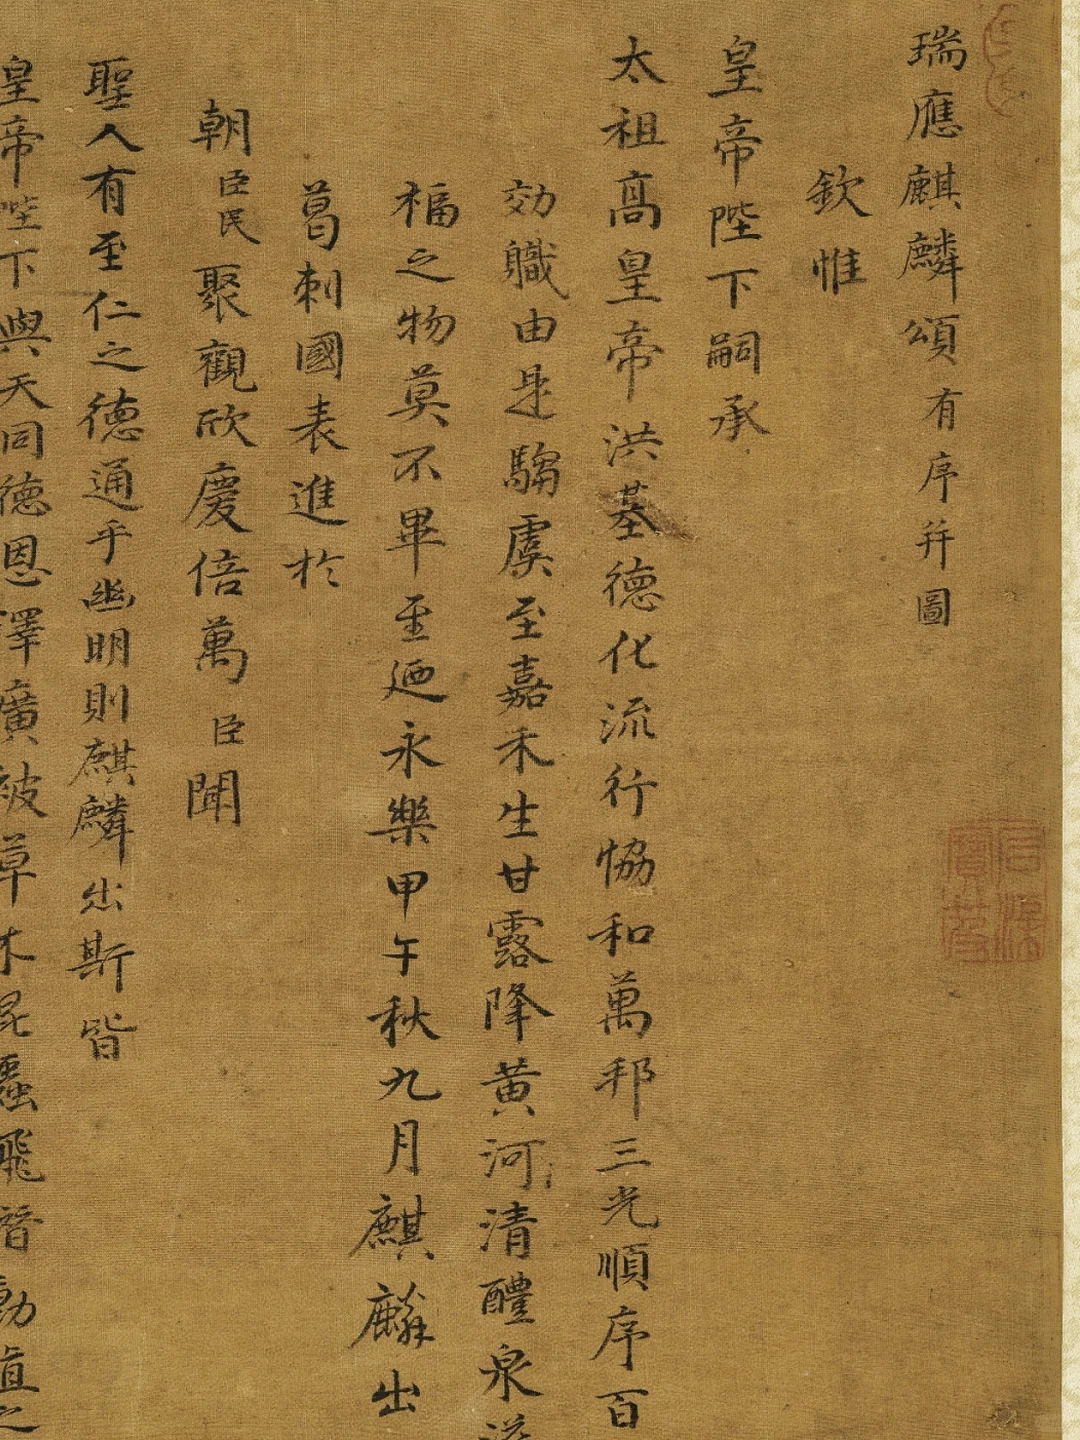 瑞應麒麟頌有序并圖
欽惟
皇帝陛下嗣承
太祖高皇帝洪基德化流行恊和萬邦三光順序百
効職由是騶虞至嘉禾生甘露降黃河清醴泉溢
福之物莫不畢至廼永樂甲午秋九月麒麟出
曷剌國表進於
朝臣民聚觀欣慶倍萬臣聞
聖人有至仁之德通乎幽明則麒麟出斯皆
皇帝陛下與天同德恩澤廣被草木昆蟲飛潛動植之